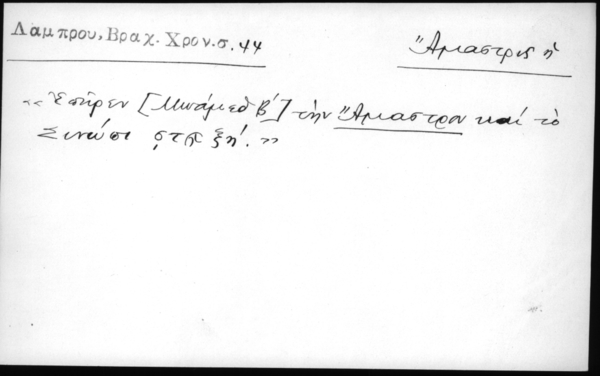 Λαμπρου, Βραχ. Χρον. σ. 44
Ἄμαστρις ἡ
«Ἐπῆρεν [Μωάμεθ Β΄] τὴν Ἄμαστρον καὶ τὸ
Σινώπι ͵ςϡξη΄.»